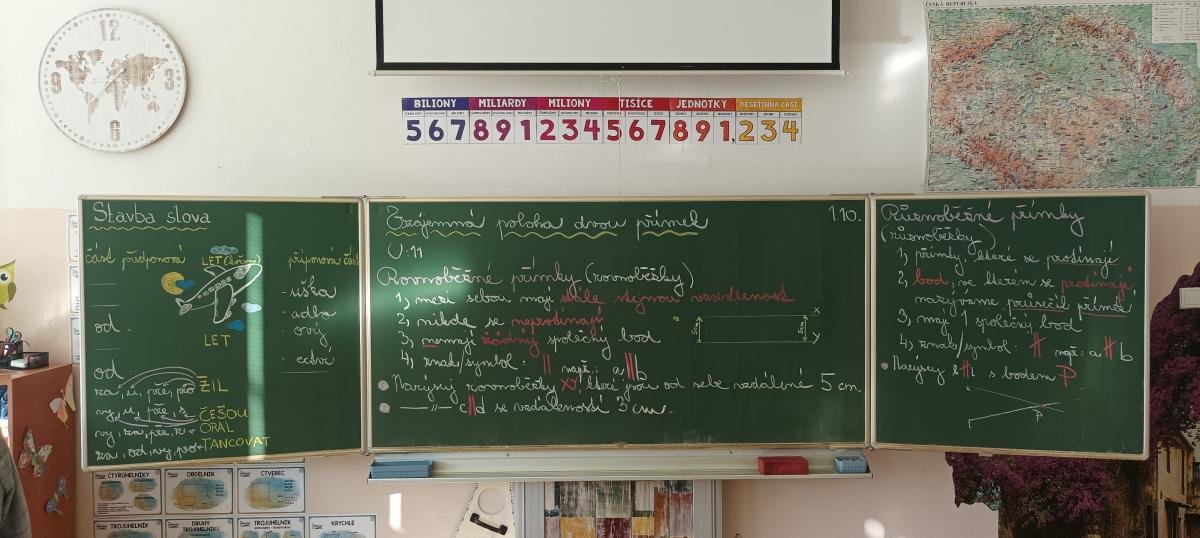 12
3
6
9
ČESKÁ REPUBLIKA
BILIONY MILIARDY MILIONY TISÍCE JEDNOTKY DESETINNÁ ČÁST
567891234567891,234
Stavba slova
část předponová
LET
příponová část
uška
ovič
od
LET
od
za, u, pře, pro
ŽIL
vy, u, pře, s
ČEŠOU
vy, za, pře, z
ORAL
za, od, vy, pro
TANCOVAT
Vzájemná poloha dvou přímek
1.10.
U: 11
Rovnoběžné přímky (rovnoběžky)
1, mezi sebou mají stále stejnou vzdálenost
2, nikde se neprotínají
3, nemají žádný společný bod
4, znak/symbol: || např.: a || b
Narýsuj rovnoběžky XY, které jsou od sebe vzdálené 5 cm.
—— || —— c || d se vzdáleností 3 cm.
x
5cm
5cm
y
Různoběžné přímky
(různoběžky)
1, přímky, které se protínají
2, bod, ve kterém se protínají
nazýváme průsečík přímek
3, mají 1 společný bod
4, znak/symbol: ∦ např.: a ∦ b
Narýsuj k ∦ l s bodem P
P
ČTYŘÚHELNÍKY
OBDÉLNÍK
ČTVEREC
TROJÚHELNÍK
DRUHY TROJÚHELNÍKŮ
TROJÚHELNÍK
KRYCHLE